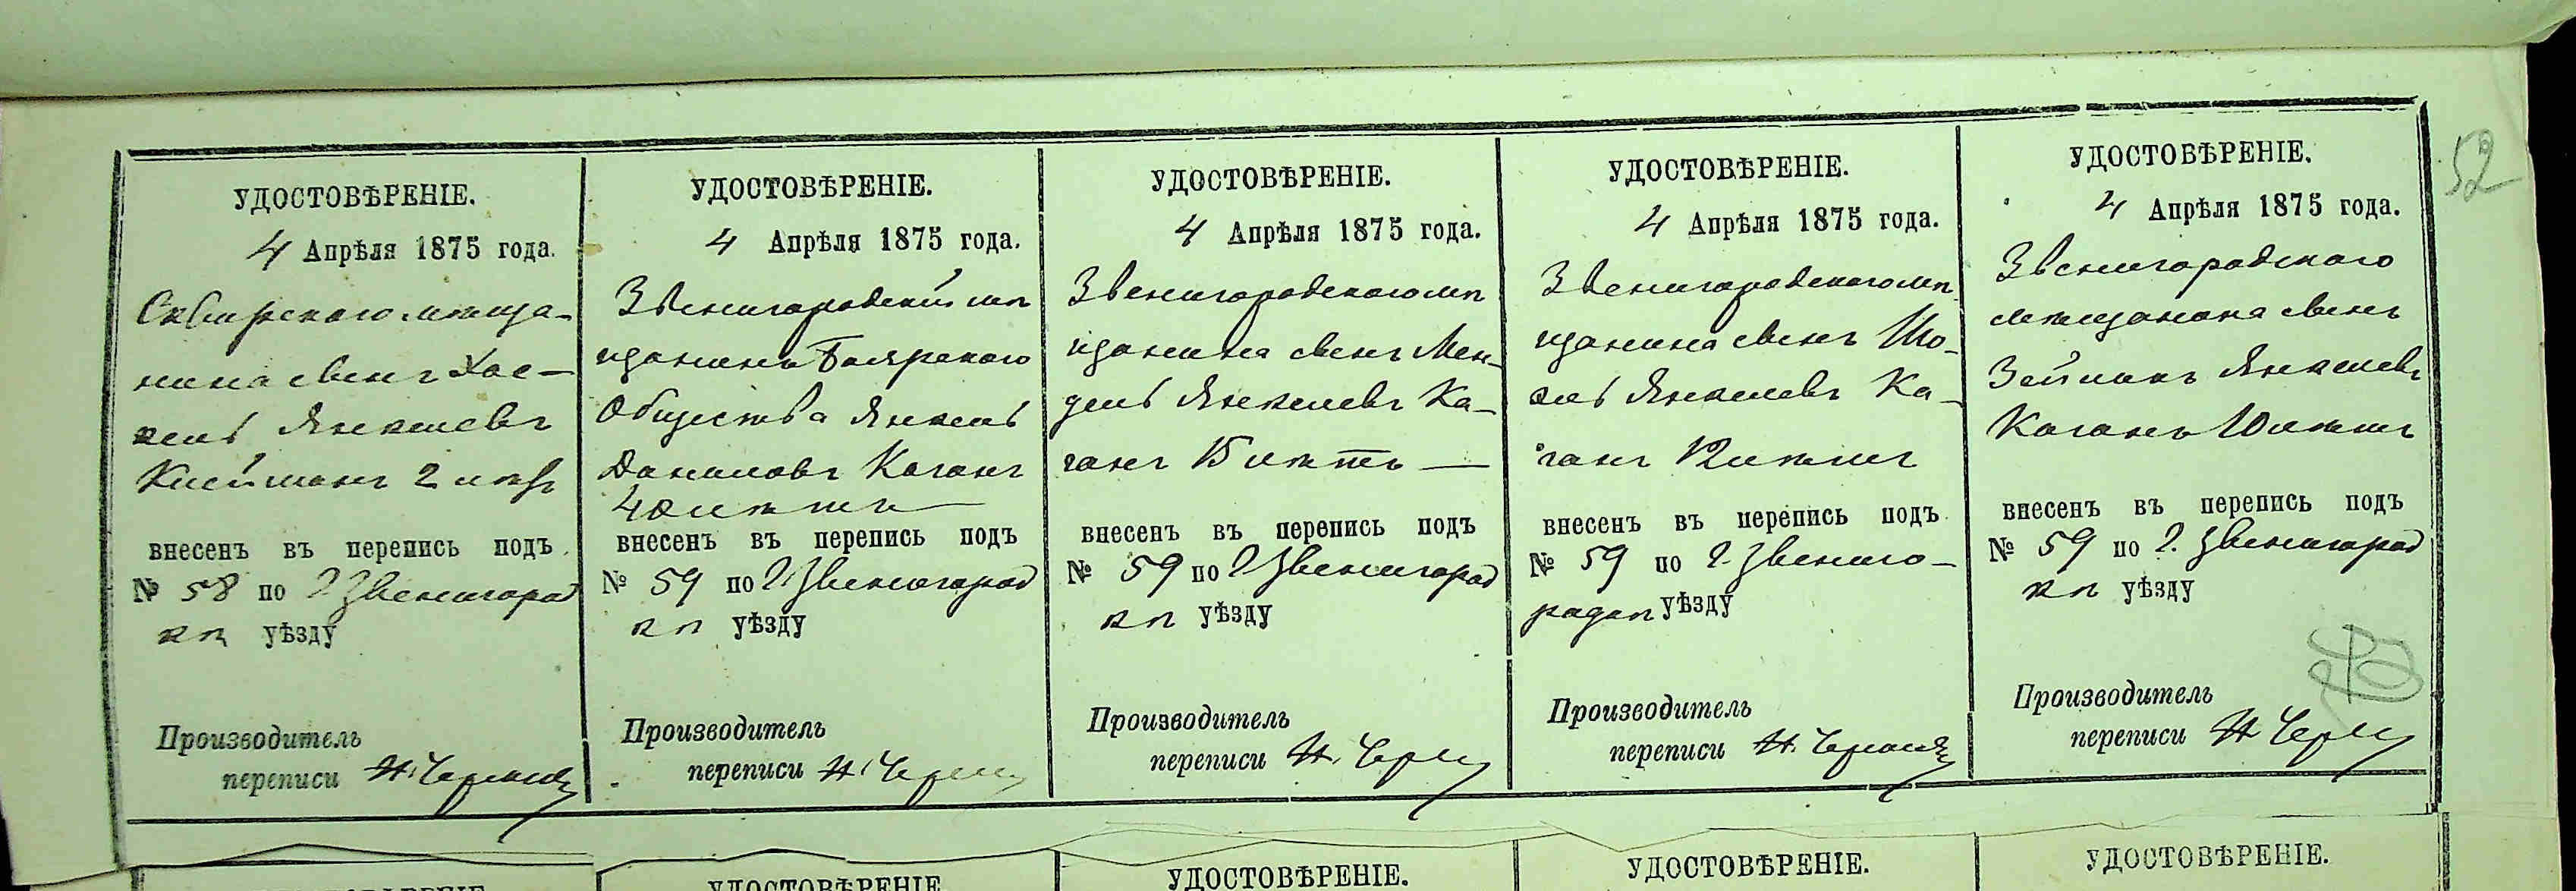 52
УДОСТОВѢРЕНІЕ.
4 Апрѣля 1875 года.
Сквирскаго мѣща-
нина сынъ Хас-
кель Янкелевъ
2
внесенъ въ перепись подъ
№ 58 по г. Звенигород
кѣ уѣзду
Производитель
переписи Н.
УДОСТОВѢРЕНІЕ.
4 Апрѣля 1875 года.
Звенигородскій мѣ
щанинъ Боярскаго
Общества Янкель
Даниловъ Каганъ
лѣтъ
внесенъ въ перепись подъ
№ 59 по г. Звенигород
кѣ уѣзду
Производитель
переписи Н.
УДОСТОВѢРЕНІЕ.
4 Апрѣля 1875 года.
Звенигородскаго мѣ
щанина сынъ Мен-
дель Янкелевъ Ка-
ганъ 15 лѣтъ —
внесенъ въ перепись подъ
№ 59 по г. Звенигород
кѣ уѣзду
Производитель
переписи Н.
УДОСТОВѢРЕНІЕ.
4 Апрѣля 1875 года.
Звенигородскаго мѣ
щанина сынъ Шо-
Янкелевъ Ка-
ганъ 12 лѣтъ
внесенъ въ перепись подъ
№ 59 по г. Звениго-
родкѣ уѣзду
Производитель
переписи Н.
УДОСТОВѢРЕНІЕ.
4 Апрѣля 1875 года.
Звенигородскаго
мѣщанина сынъ
Зейманъ Янкелевъ
Каганъ 10 лѣтъ
внесенъ въ перепись подъ
№ 59 по г. Звенигород
кѣ уѣзду
Производитель
переписи Н.
УДОСТОВѢРЕНІЕ
УДОСТОВѢРЕНІЕ.
УДОСТОВѢРЕНІЕ.
УДОСТОВѢРЕНІЕ.